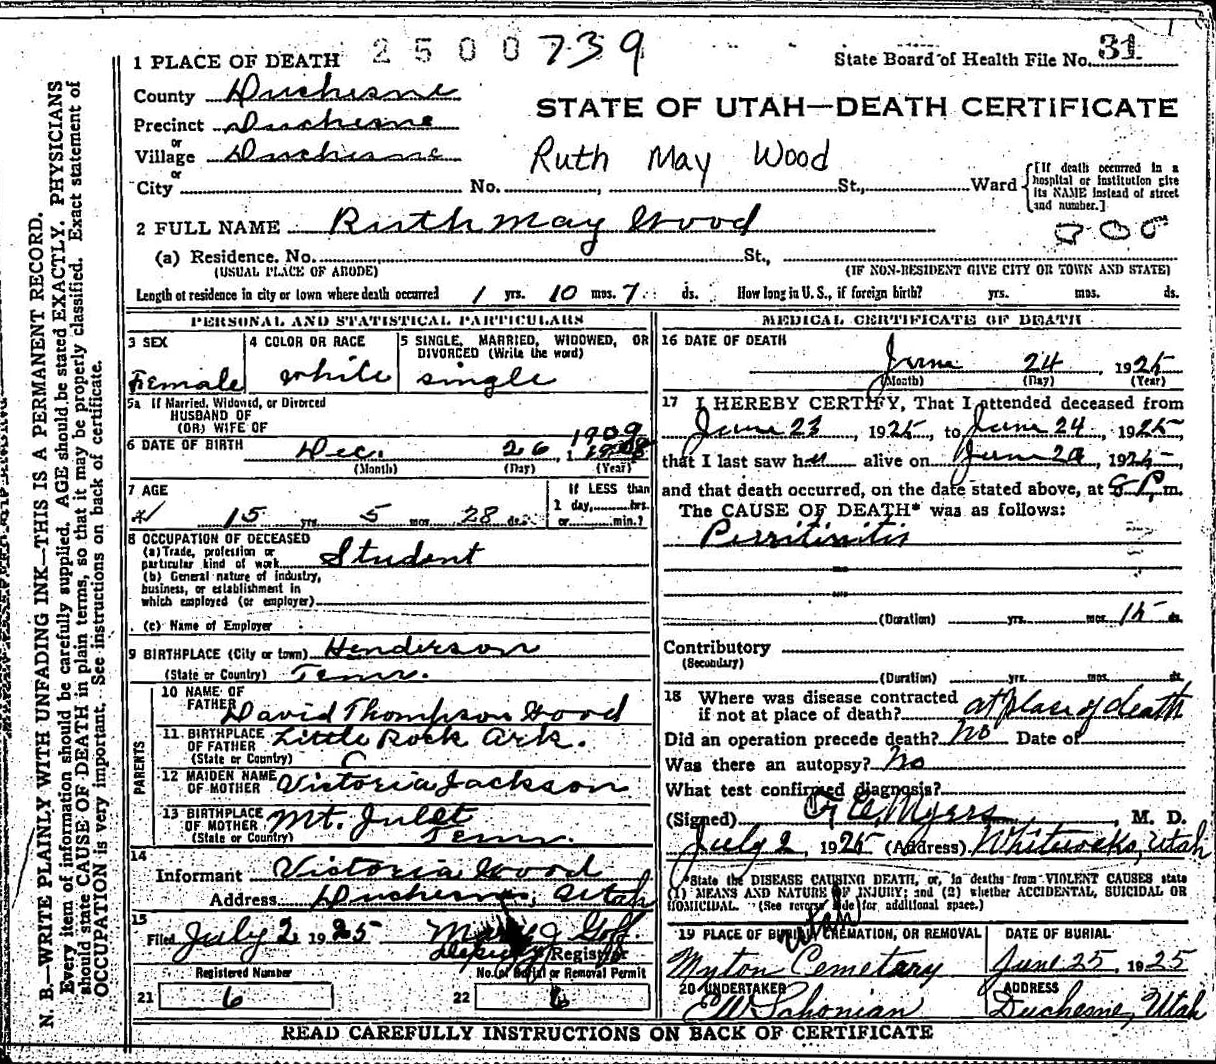 2500739
State Board of Health File No. 31
1 PLACE OF DEATH
County Duchesne
STATE OF UTAH—DEATH CERTIFICATE
Precinct Duchesne
or
Village Duchesne
Ruth May Wood
or
City No. St., Ward
[If death occurred in a hospital or institution give its NAME instead of street and number.]
2 FULL NAME Ruth May Wood
(a) Residence. No. St.,
(USUAL PLACE OF ABODE) (IF NON-RESIDENT GIVE CITY OR TOWN AND STATE)
Length of residence in city or town where death occurred 1 yrs. 10 mos. 7 ds. How long in U. S., if foreign birth? yrs. mos. ds.
PERSONAL AND STATISTICAL PARTICULARS
3 SEX
Female
4 COLOR OR RACE
white
5 SINGLE, MARRIED, WIDOWED, OR
DIVORCED (Write the word)
single
5a If Married, Widowed, or Divorced
HUSBAND OF
(OR) WIFE OF
6 DATE OF BIRTH Dec. 26, 1909
(Month) (Day) (Year)
7 AGE
15 yrs. 5 mos. 28 ds.
If LESS than
1 day, hrs.
or min.?
8 OCCUPATION OF DECEASED
(a) Trade, profession or
particular kind of work Student
(b) General nature of industry,
business, or establishment in
which employed (or employer)
(c) Name of Employer
9 BIRTHPLACE (City or town) Henderson
(State or Country) Tenn.
PARENTS
10 NAME OF
FATHER David Thompson Wood
11 BIRTHPLACE
OF FATHER Little Rock Ark.
(State or Country)
12 MAIDEN NAME
OF MOTHER Victoria Jackson
13 BIRTHPLACE
OF MOTHER Mt. Julet
(State or Country) Tenn.
14
Informant Victoria Wood
Address Duchesne, Utah
15
Filed July 2 1925 J Goff
Deputy Registrar
Registered Number No. of Burial or Removal Permit
21 6 22 6
MEDICAL CERTIFICATE OF DEATH
16 DATE OF DEATH
June 24 1925
(Month) (Day) (Year)
17 I HEREBY CERTIFY, That I attended deceased from
June 23, 1925, to June 24, 1925,
that I last saw her alive on June 24, 1925
and that death occurred, on the date stated above, at 8 P.m.
The CAUSE OF DEATH* was as follows:
Perritinitis
(Duration) yrs. mos. 15 ds.
Contributory
(Secondary)
(Duration) yrs. mos. ds.
18 Where was disease contracted
if not at place of death? at place of death
Did an operation precede death? No Date of
Was there an autopsy? No
What test confirmed diagnosis?
(Signed) Myers, M. D.
July 2, 1925 (Address) Whiterocks, Utah
*State the DISEASE CAUSING DEATH, or, in deaths from VIOLENT CAUSES state
(1) MEANS AND NATURE OF INJURY; and (2) whether ACCIDENTAL, SUICIDAL OR
HOMICIDAL. (See reverse side for additional space.)
19 PLACE OF BURIAL, CREMATION, OR REMOVAL
Utah
Myton Cemetary
DATE OF BURIAL
June 25, 1925
20 UNDERTAKER
E W Schonian
ADDRESS
Duchesne, Utah
READ CAREFULLY INSTRUCTIONS ON BACK OF CERTIFICATE
N. B.—WRITE PLAINLY WITH UNFADING INK—THIS IS A PERMANENT RECORD.
Every item of information should be carefully supplied. AGE should be stated EXACTLY. PHYSICIANS
should state CAUSE OF DEATH in plain terms, so that it may be properly classified. Exact statement of
OCCUPATION is very important. See instructions on back of certificate.